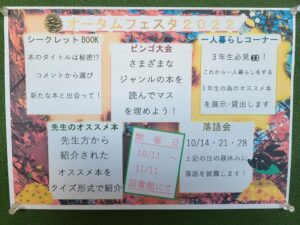 オータムフェスタ2022
シークレットBOOK
本のタイトルは秘密!?
コメントから選び
新たな本と出会って!
ビンゴ大会
さまざまな
ジャンルの本を
読んでマス
を埋めよう!
一人暮らしコーナー
3年生必見
これから一人暮らしをする
3年生の為のオススメ本
を展示・貸出します
先生のオススメ本
先生方から
紹介された
オススメ本を
クイズ形式で紹介
開催日
10/11～
11/11
図書館にて
落語会
10/14・21・28
上記の日の昼休みに
落語を披露します!